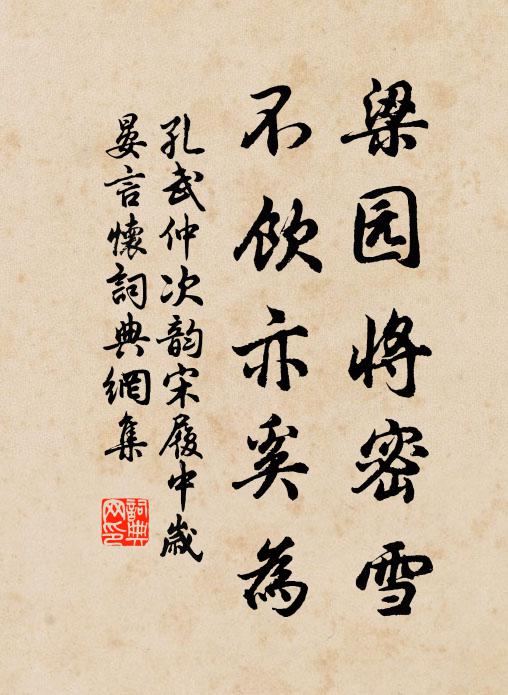 梁园将密雪
不饮亦奚為
孔武仲次韵宋履中歲
晏言懷詞典網集
詞典
网印